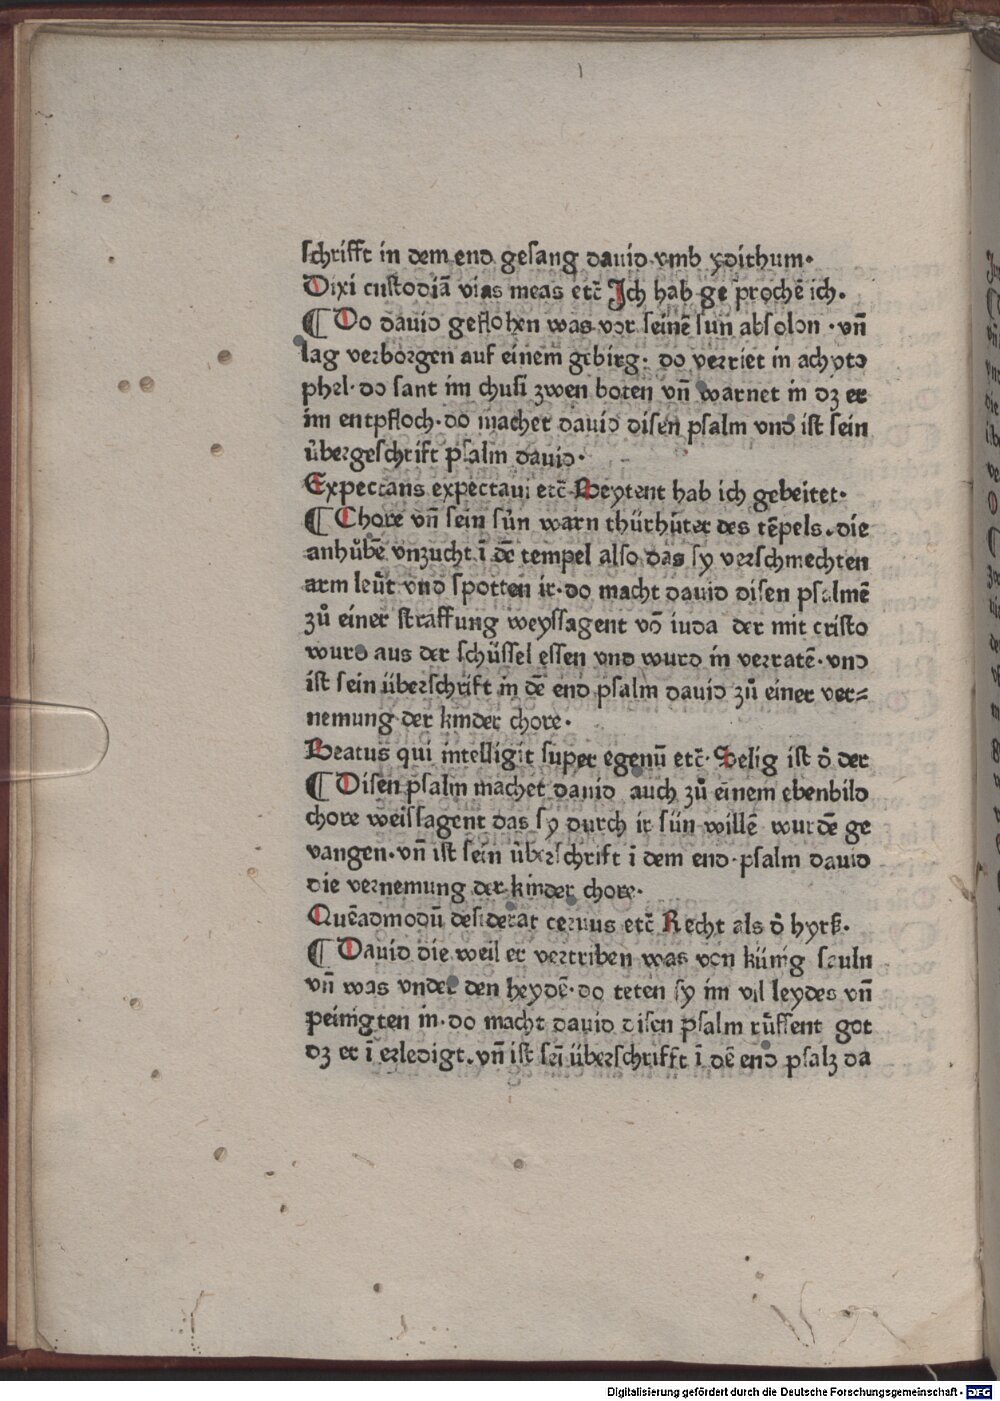 schrifft in dem end gesang dauid vmb ydithum·
Dixi custodiā vias meas etc̄ Jch hab ge prochē ich·
¶ Do dauid geflohen was vor seinē sun absolon · vn̄
lag verborgen auf einem gebirg· do verriet in achyto
phel· do sant im chusi zwen boten vn̄ warnet in dz er
im entpfloch· do machet dauid disen psalm vnd ist sein
übergeschrift psalm dauid·
Expectans expectaui etc̄ Beytent hab ich gebeitet·
¶ Chore vn̄ sein sün warn thürhüter des tēpels· die
anhůbē vnzucht ī dē tempel also das sy verschmechten
arm leüt vnd spotten ir· do macht dauid disen psalmē
zů einer straffung weyssagent vō iuda der mit cristo
wurd aus der schüssel essen vnd wurd in verratē· vnd
ist sein überschrift in dē end psalm dauid zů einer ver⸗
nemung der kinder chore·
Beatus qui intelligit super egenū etc̄· Selig ist d̓ der
¶ Disen psalm machet dauid auch zů einem ebenbild
chore weissagent das sy durch ir sün willē wurdē ge
vangen· vn̄ ist sein überschrift ī dem end· psalm dauid
die vernemung der kinder chore·
Quēadmodū desiderat ceruus etc̄ Recht als d̓ hyrß·
¶ Dauid die weil er vertriben was von künig sauln
vn̄ was vnder den heydē· do teten sy im vil leydes vn̄
peinigten in· do macht dauid disen psalm rüffent got
dz er ī erledigt· vn̄ ist seī überschrifft ī dē end psalz da
Digitalisierung gefördert durch die Deutsche Forschungsgemeinschaft - DFG